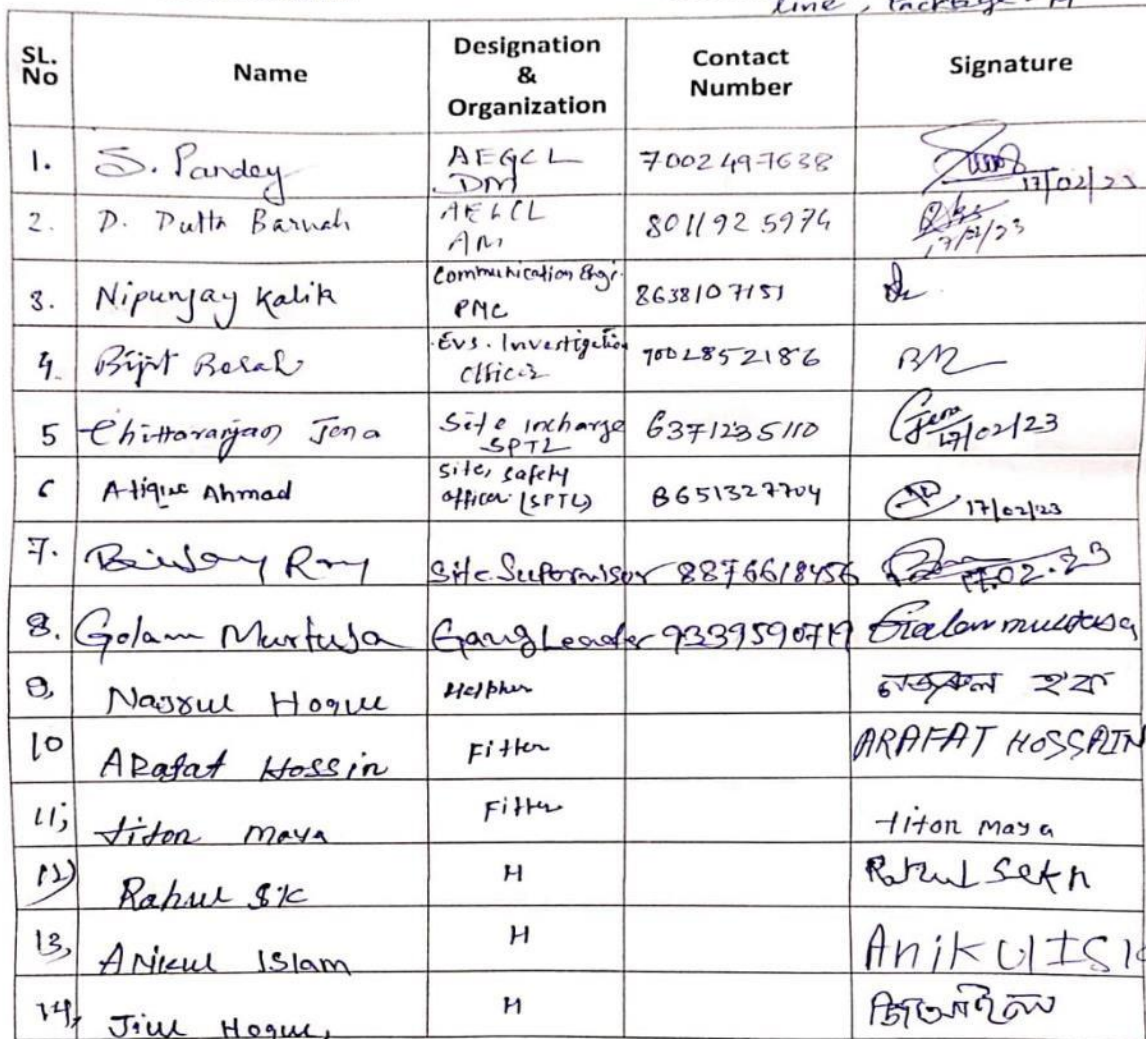 line, Package
SL. No Name Designation & Organization Contact Number Signature
1. S. Pandey AEGCL DM 7002497638 17/02/23
2. D. Dutta Baruah AEGCL AM 8011925974 17/02/23
3. Nipunjay Kalik Communication Engr. PMC 8638107151
4. Bijit Borah Evs. Investigation Officer 7002852186
5 Chittaranjan Jena Site incharge SPTL 6371235110 Jena 17/02/23
6 Atique Ahmad Site, safety officer (SPTL) 8651327704 17/02/23
7. Ray Site Supervisor 8876618456 17.02.23
8. Golam Murtuja Gang Leader 9339590719 Golam murtusa
9, Nasrul Hoque Helpher হক
10 ARafat Hossin Fitter ARAFAT HOSSAIN
11; titon maya Fitter titon maya
12) Rahul SK H Rahul Sekh
13, Anikul Islam H Anikul ISl
14, Jiul Hoque, H